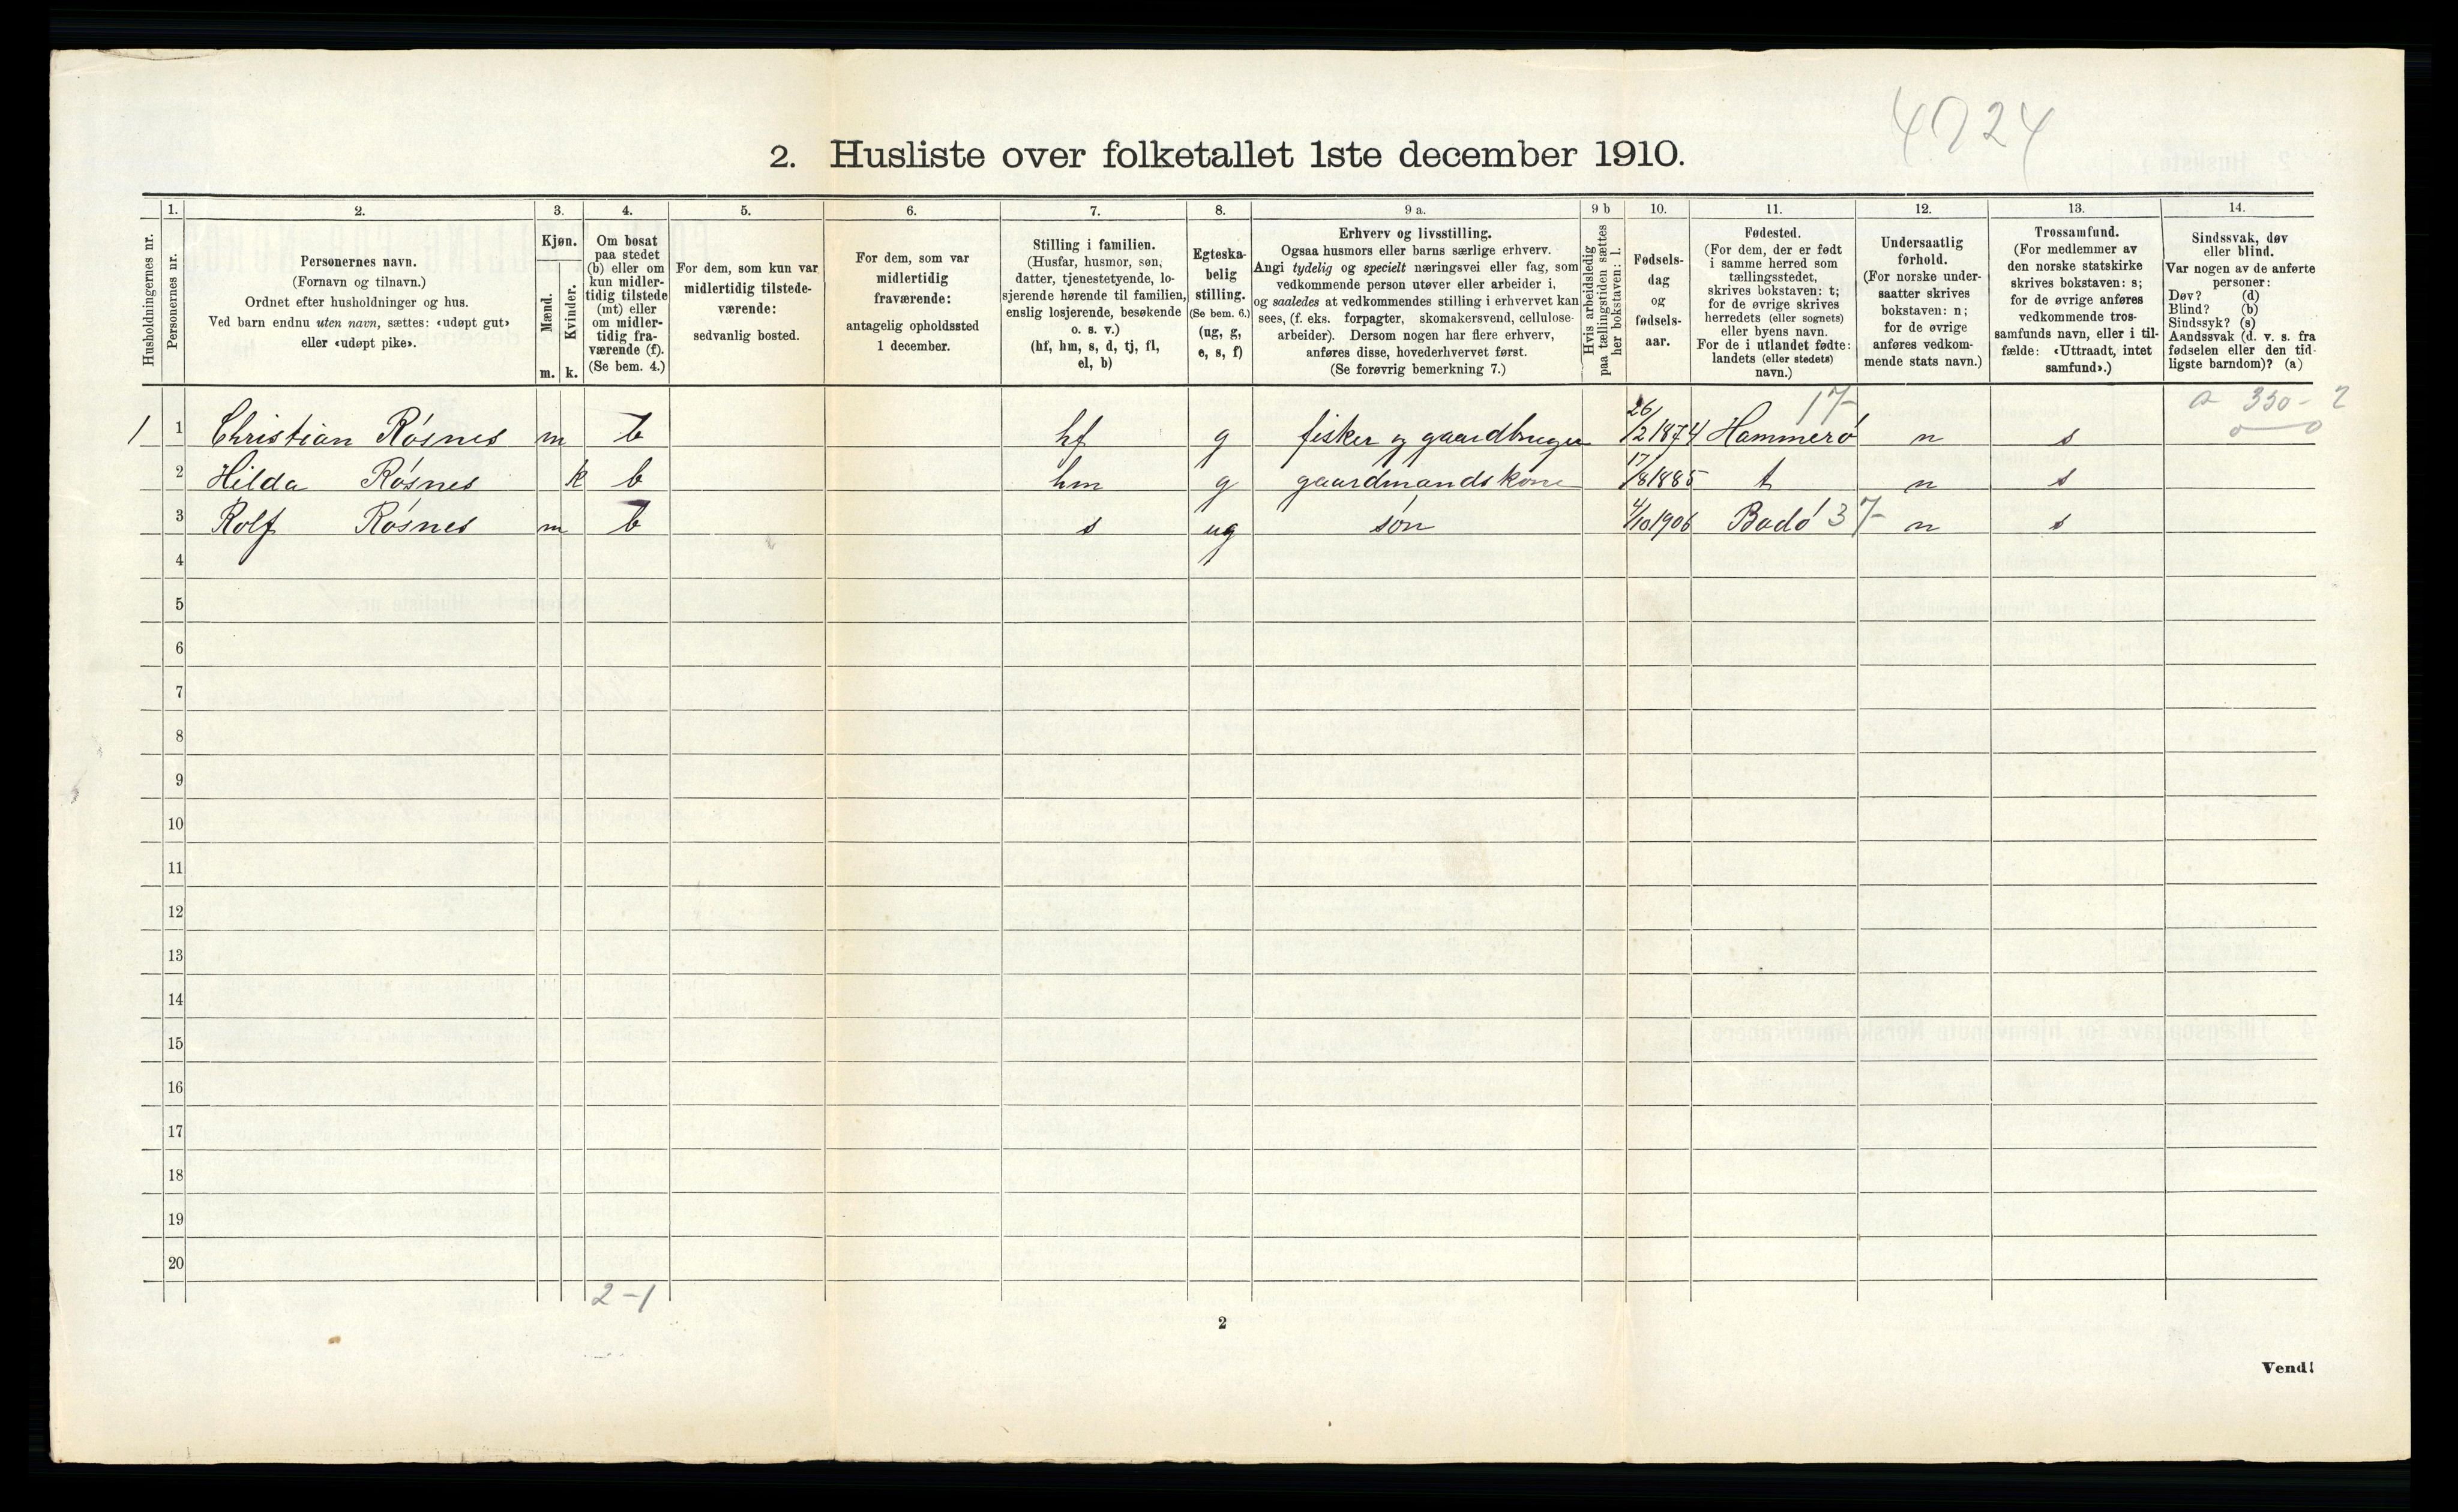 4724
2. Husliste over folketallet 1ste december 1910.
Husholdningernes nr.
1.
Personernes nr.
2.
Personernes navn.
(Fornavn og tilnavn.)
Ordnet efter husholdninger og hus.
Ved barn endnu uten navn, sættes: «udøpt gut»
eller «udøpt pike».
3.
Kjøn.
Mænd.
Kvinder.
m. k.
4.
Om bosat
paa stedet
(b) eller om
kun midler-
tidig tilstede
(mt) eller
om midler-
tidig fra-
værende (f).
(Se bem. 4.)
5.
For dem, som kun var
midlertidig tilstede-
værende:
sedvanlig bosted.
6.
For dem, som var
midlertidig
fraværende:
antagelig opholdssted
1 december.
7.
Stilling i familien.
(Husfar, husmor, søn,
datter, tjenestetyende, lo-
sjerende hørende til familien,
enslig losjerende, besøkende
o. s. v.)
(hf, hm, s, d, tj, fl,
el, b)
8.
Egteska-
belig
stilling.
(Se bem. 6.)
(ug, g,
e, s, f)
9 a.
Erhverv og livsstilling.
Ogsaa husmors eller barns særlige erhverv.
Angi tydelig og specielt næringsvei eller fag, som
vedkommende person utøver eller arbeider i,
og saaledes at vedkommendes stilling i erhvervet kan
sees, (f. eks. forpagter, skomakersvend, cellulose-
arbeider). Dersom nogen har flere erhverv,
anføres disse, hovederhvervet først.
(Se forøvrig bemerkning 7.)
9 b
Hvis arbeidsledig
paa tællingstiden sættes
her bokstaven: l.
10.
Fødsels-
dag
og
fødsels-
aar.
11.
Fødested.
(For dem, der er født
i samme herred som
tællingsstedet,
skrives bokstaven: t;
for de øvrige skrives
herredets (eller sognets)
eller byens navn.
For de i utlandet fødte:
landets (eller stedets)
navn.)
12.
Undersaatlig
forhold.
(For norske under-
saatter skrives
bokstaven: n;
for de øvrige
anføres vedkom-
mende stats navn.)
13.
Trossamfund.
(For medlemmer av
den norske statskirke
skrives bokstaven: s;
for de øvrige anføres
vedkommende tros-
samfunds navn, eller i til-
fælde: «Uttraadt, intet
samfund».)
14.
Sindssvak, døv
eller blind.
Var nogen av de anførte
personer:
Døv? (d)
Blind? (b)
Sindssyk? (s)
Aandssvak (d. v. s. fra
fødselen eller den tid-
ligste barndom)? (a)
17-
1 1 Christian Røsnes m b hf g fisker og gaardbruger 26/2 1874 Hammerø n s
2 Hilda Røsnes k b hm g gaardmandskone 17/8 1885 t n s
3 Rolf Røsnes m b s ug søn 4/10 1906 Bodø 37- n s
4
5
6
7
8
9
10
11
12
13
14
15
16
17
18
19
20
2-1
2
Vend!